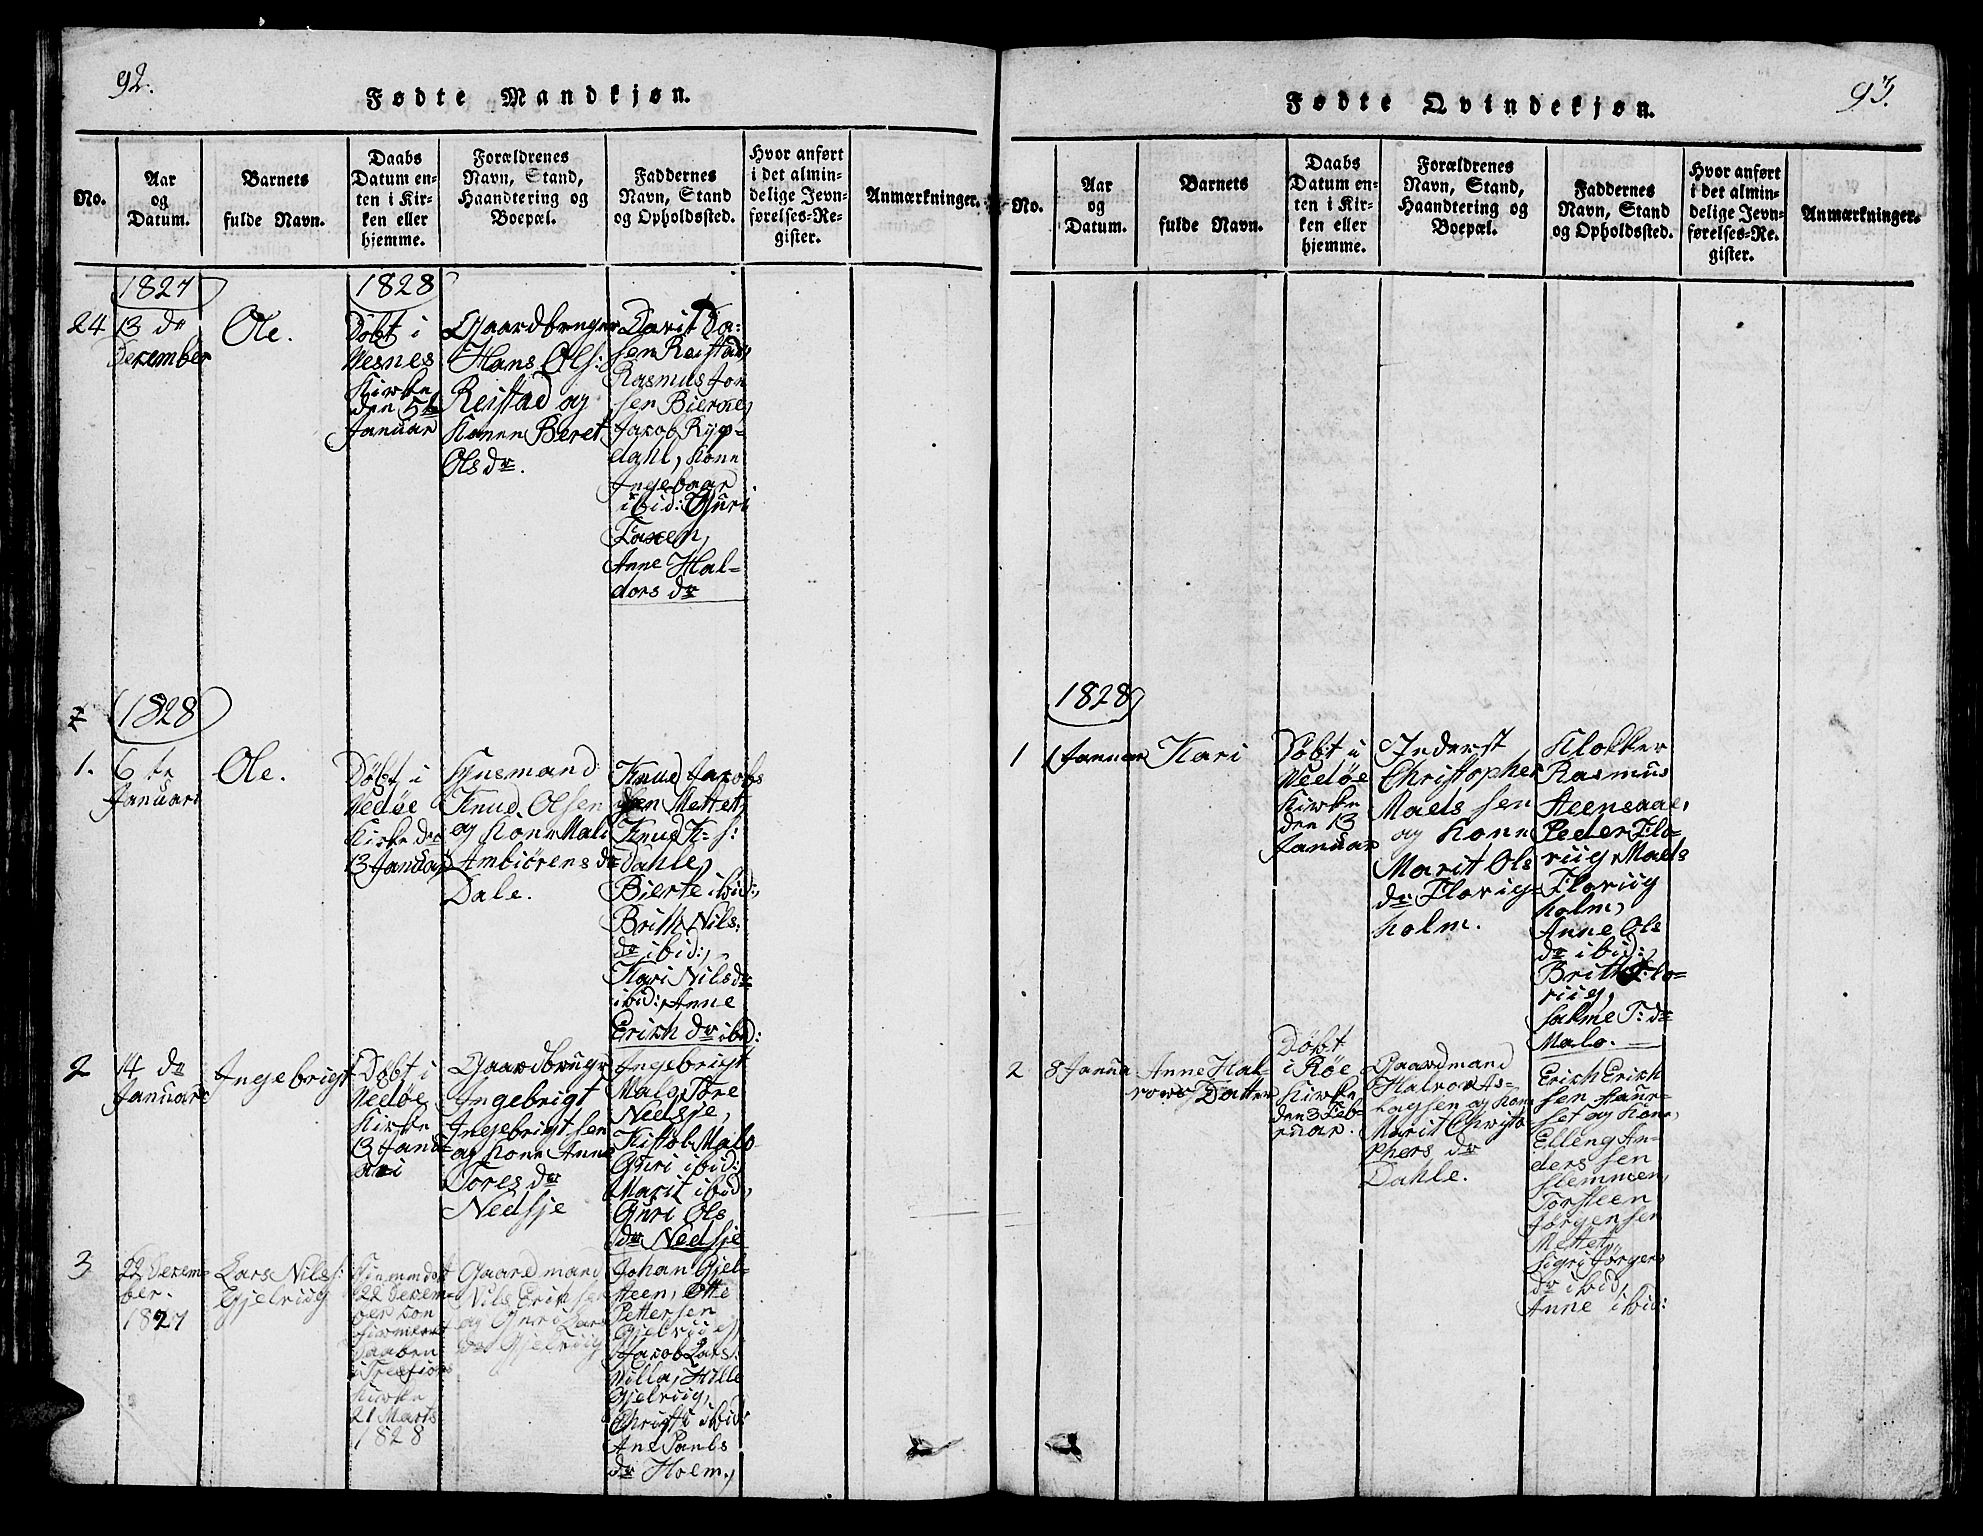 92.
Fødte Mandkjøn.
No.
Aar
og
Datum.
Barnets
fulde Navn.
Daabs
Datum en-
ten i Kir-
ken eller
hjemme.
Forældrenes
Navn, Stand,
Haandtering og
Boepæl.
Faddernes
Navn, Stand
og Opholdssted.
Hvor anført
i det almin-
delige Jevn-
førelses-Re-
gister.
Anmærkninger.
1827
24
13 de
December
Ole.
1828
Døbt i
Wesnes
Kirke
den 5te
Januar
Gaardbruger
Hans Ols:
Reistad og
Konen Beret
Olsdr.
sen Reistad,
Rasmus Jon
sen Bierme,
Jacob Ryp-
dahl, Kone
Ingeboar
ibid: Guri
Anne Hal-
dors dr
1828
1.
6 te
Januari
Ole.
Døbt i
Wedøe
Kirke de
13 Januar
Huusmand
Knud Olsen
og Kone Mali
Ambiørens dr
Dale.
Knud Jacobs
sen Mettet,
Knud K: s:
Dahle,
Bierte ibid:,
Britth Nils:
dr ibid:,
Kari Nilsdr
ibid:, Anne
Erich dr ibid:
2
14 de
Januari
Ingebrigt
Døbt i
Wedøe
Kirke
13 Janu-
ari
Gaardbruger
Ingebrigt
Ingebrigtsen
og Kone Anne
Tores dr
Nedsje
Ingebrigt
Malo, Tore
Nedsje,
Kistøb Malo
Guri ibid:
Marit ibid,
Guri Ols
dr Nedsje
3
22 Decem-
ber.
1827
Lars Nils s:
Gjelviig
Hiemmedøbt
22 Decem-
ber con
firmeret
Daaben
i Tresfiords
Kirke
21 Marts
1828
Gaardmand
Nils Erichsen
og Guri Lars
dr Gjelviig
Johan Gjel-
steen, Otte
Pettersen
Gjelviig,
Jacob Lars:
Villa, Hille
Gjelviig,
Christi ibid:
Ane Pauls
dr Holm,
93.
Fødte Qvindekjøn.
No.
Aar
og
Datum.
Barnets
fulde Navn.
Daabs
Datum en-
ten i Kir-
ken eller
hjemme.
Forældrenes
Navn, Stand,
Haandtering og
Boepæl.
Faddernes
Navn, Stand
og Opholdssted.
Hvor anført
i det almin-
delige Jevn-
førelses-Re-
gister.
Anmærkninger.
1828
1
1 Januar
Kari
Døbt i
Wedøe
Kirke
den 13
Januar
Inderst
Christopher
Maels sen
og Kone
Marit Ols
dr Florig-
holm.
Klokker
Rasmus
Steensaae,
Peder Flo-
riig, Maels
Floriig
holm,
Anne Ols
dr ibid:
Britth Flo-
riig,
Salme T: dr
Malo.
2
8 Janua
Anne Hal-
vors Datter
Døbt
i Røe
Kirke
den 3 Feb-
ruar.
Gaardmand
Halvor As-
lagsen og Kone
Marit Christo
phers dr
Dahle.
Erich Erich
sen Haur-
set og Kone,
Elling An-
ders sen
Hemmen,
Torsteen
Jørgensen
Mettet,
Sigri Jørgens
dr ibid,
Anne ibid: